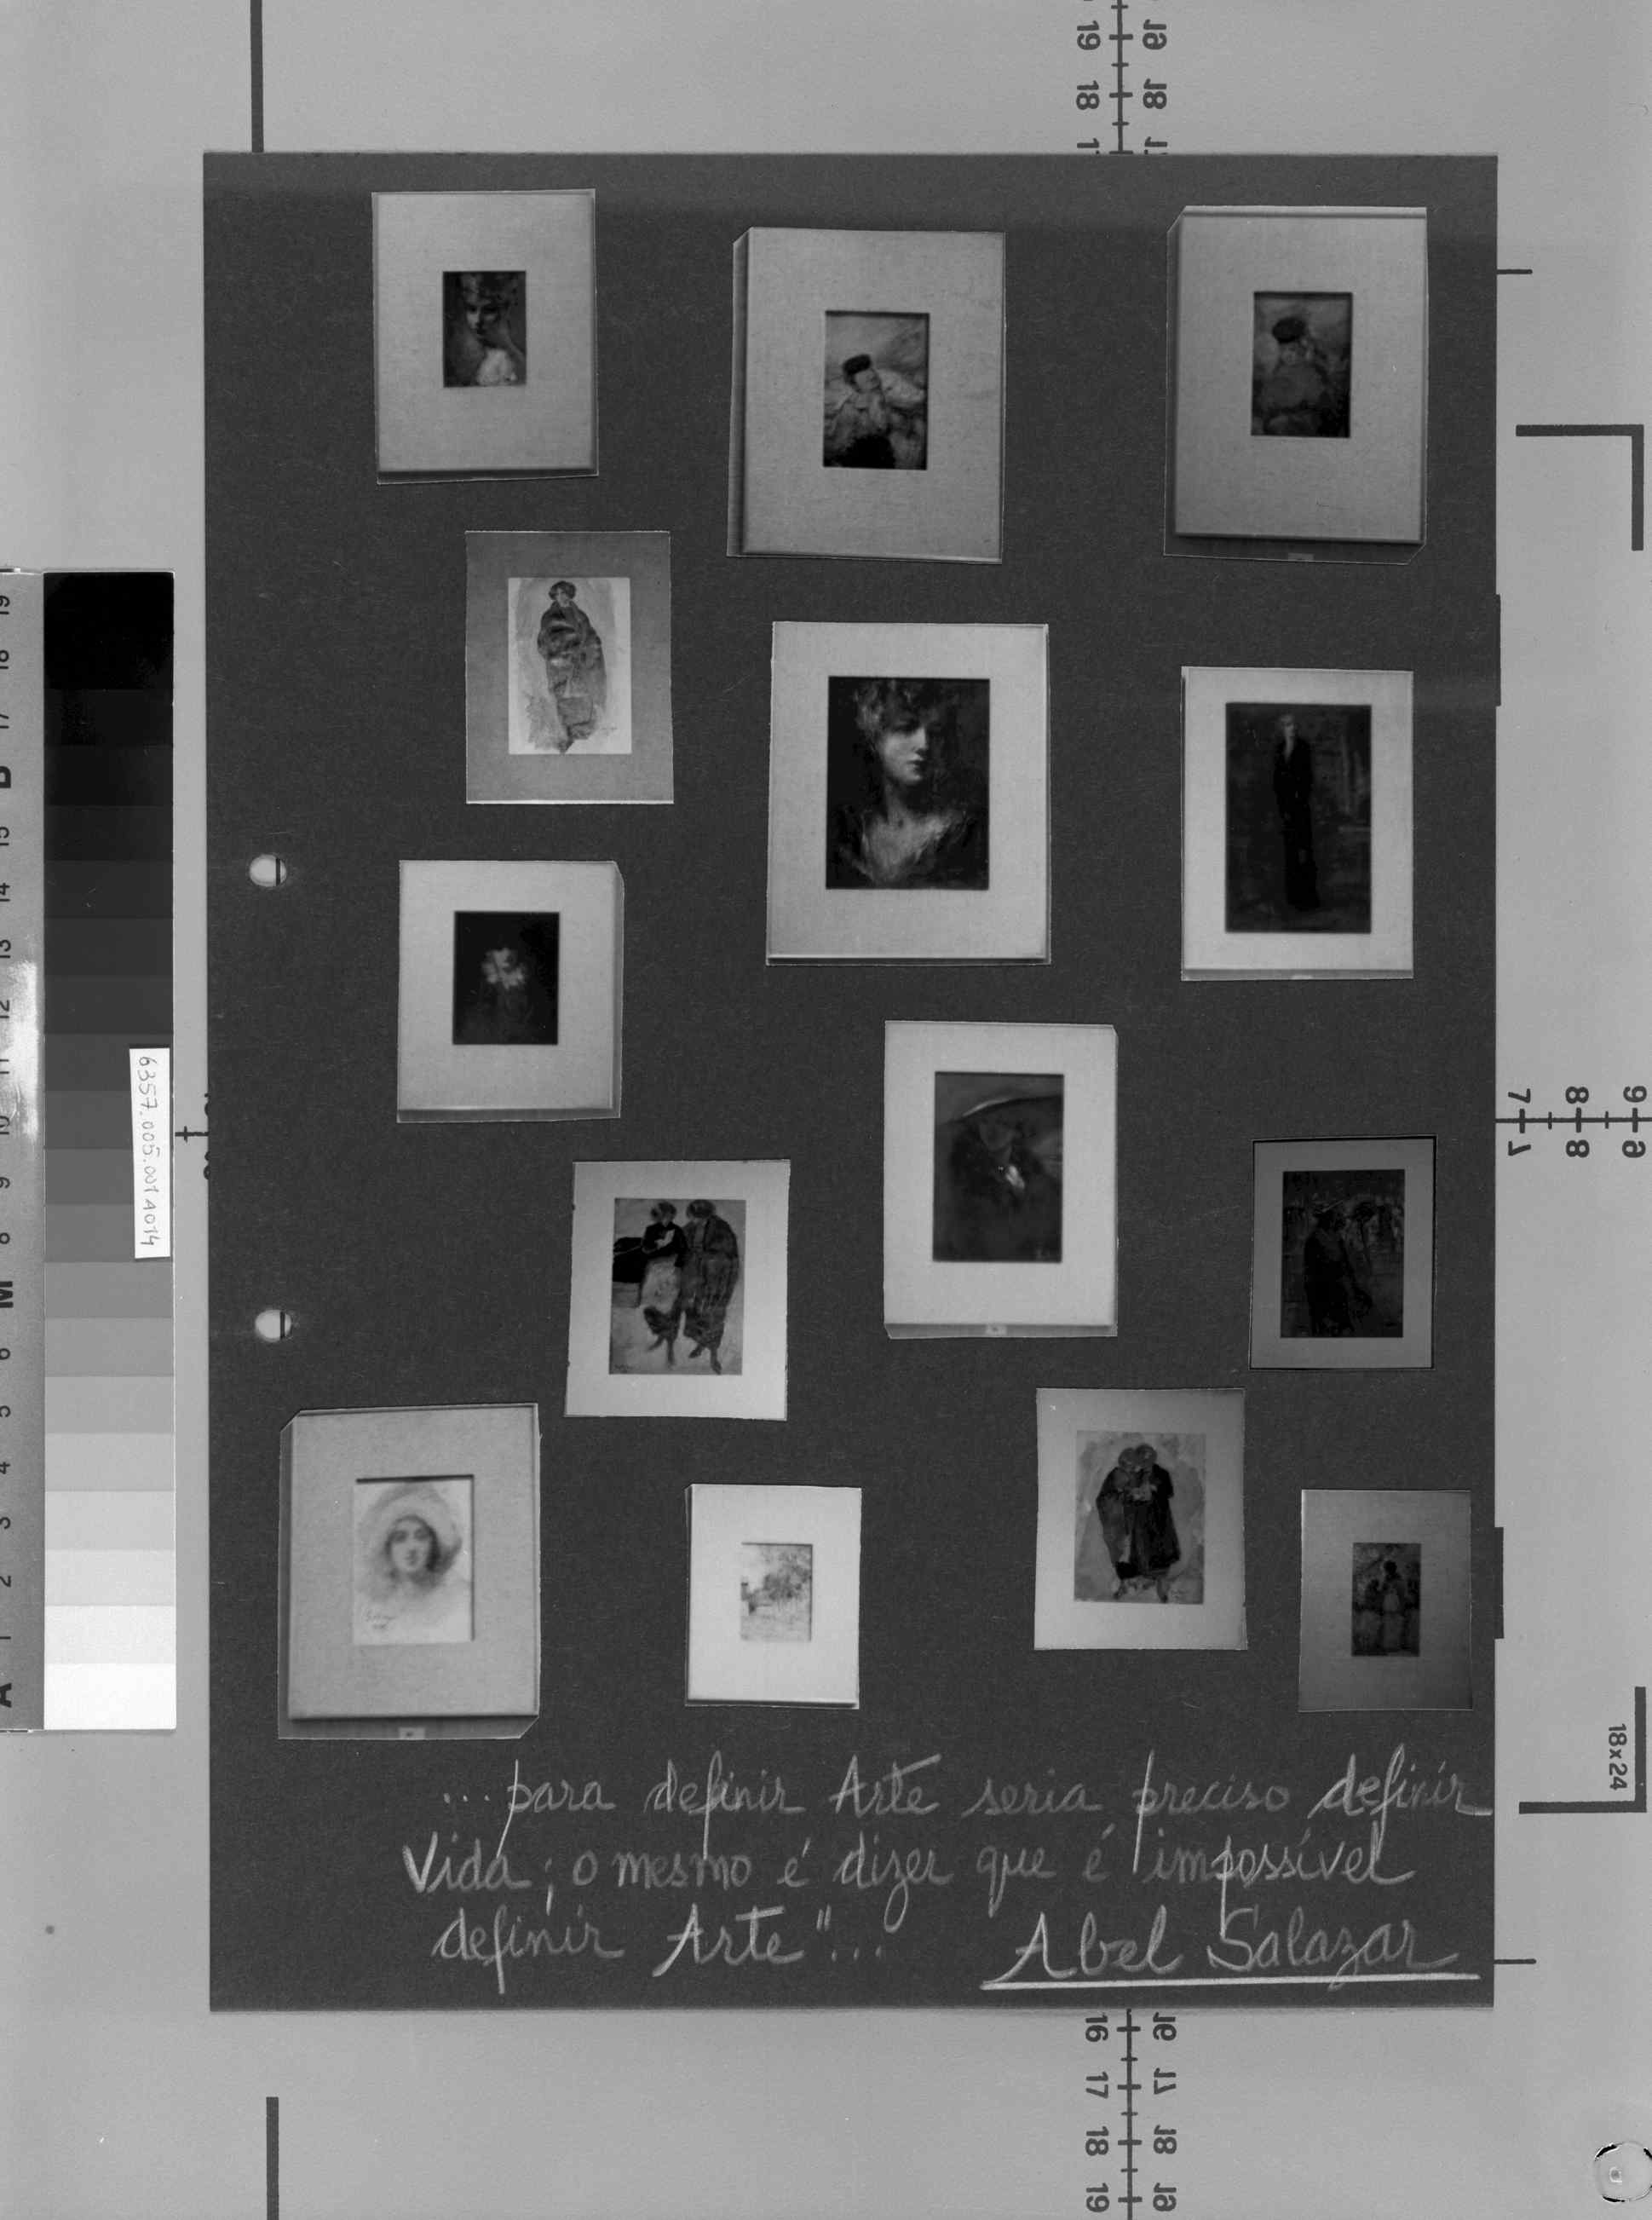 19 18
18x24
6357.005.001A014
... para definir Arte seria preciso definir
Vida; o mesmo é dizer que é impossível
definir Arte"...
Abel Salazar
7 8 9
7 8 9
16 17 18 19
A 1 2 3 4 5 6 M 8 9 10 11 12 13 14 15 B 17 18 19